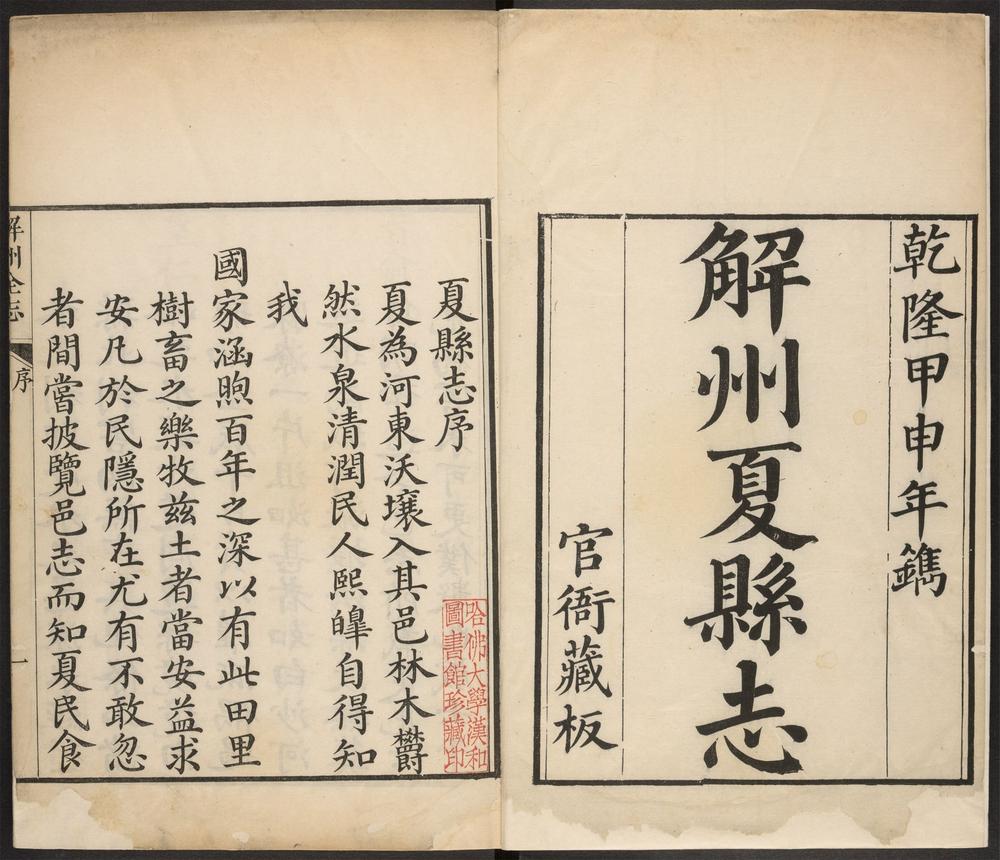 乾隆甲申年鐫
解州夏縣志
官衙藏板
夏縣志序
夏為河東沃壤入其邑林木欝
然水泉清潤民人熙皥自得知
我
國家涵煦百年之深以有此田里
樹畜之樂牧兹土者當安益求
安凡於民隱所在尤有不敢忽
者間嘗披覽邑志而知夏民食
哈佛大學漢和
圖書館珍藏印
解州全志
序
一